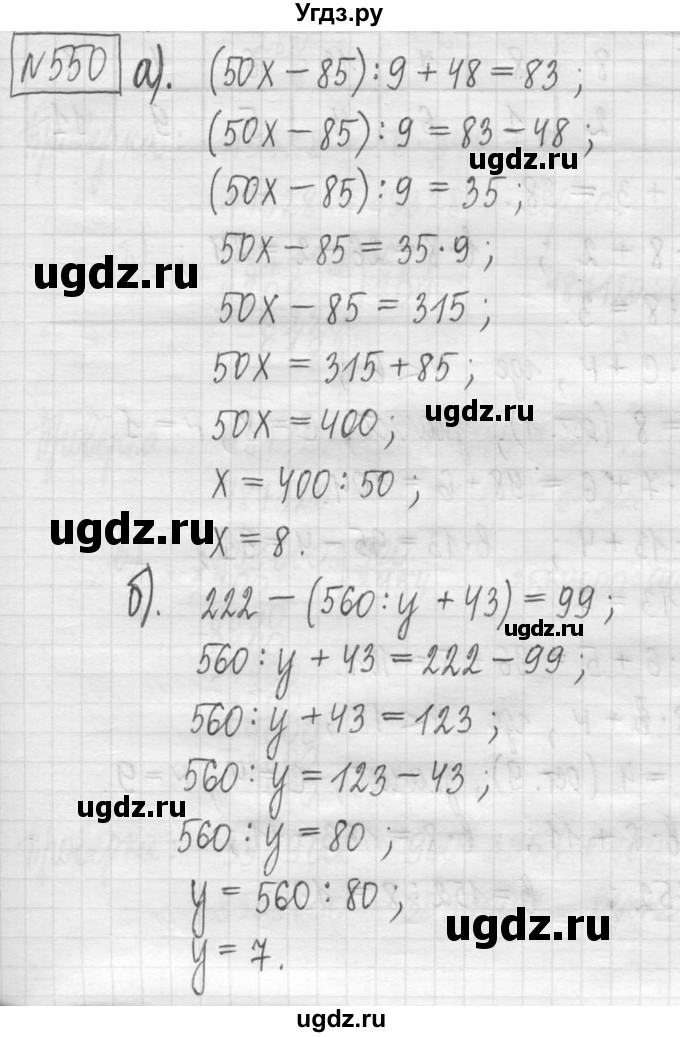 Угдз.ру
№550 а). (50x – 85) : 9 + 48 = 83 ;
(50x – 85) : 9 = 83 – 48 ;
ugdz.ru
(50x – 85) : 9 = 35 ;
50x – 85 = 35 · 9 ;
ugdz.ru
50x – 85 = 315 ;
50x = 315 + 85 ;
ugdz.ru
50x = 400 ;
x = 400 : 50 ;
ugdz.ru
x = 8 .
б). 222 – (560 : y + 43) = 99 ;
ugdz.ru
560 : y + 43 = 222 – 99 ;
560 : y + 43 = 123 ;
560 : y = 123 – 43 ;
ugdz.ru
560 : y = 80 ;
y = 560 : 80 ;
ugdz.ru
y = 7 .
ugdz.ru